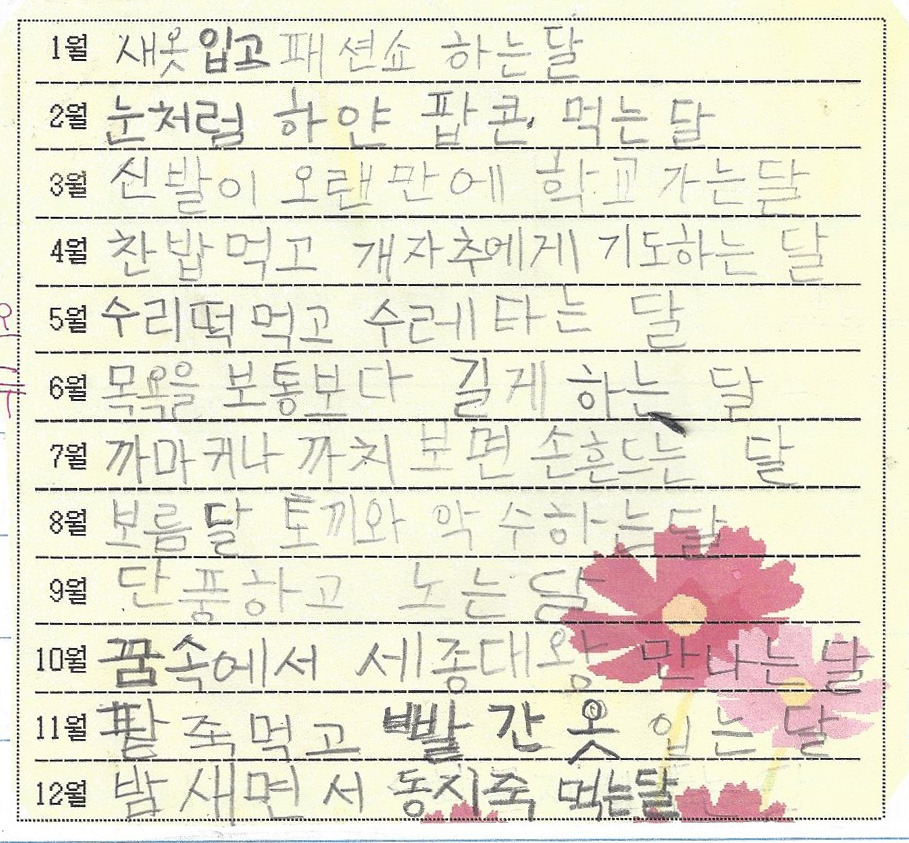 1월 새옷 입고 패션쇼 하는달
2월 눈처럼 하얀 팝콘 먹는 달
3월 신발이 오랜만에 학교 가는달
4월 찬밥먹고 개자추에게 기도하는 달
5월 수리떡 먹고 수레타는 달
6월 목욕을 보통보다 길게 하는 달
7월 까마귀나 까치 보면 손흔드는 달
8월 보름달 토끼와 악수하는달
9월 단풍하고 노는달
10월 꿈속에서 세종대왕 만나는달
11월 팥죽먹고 빨간 옷 입는 달
12월 밤새면서 동지죽 먹는달